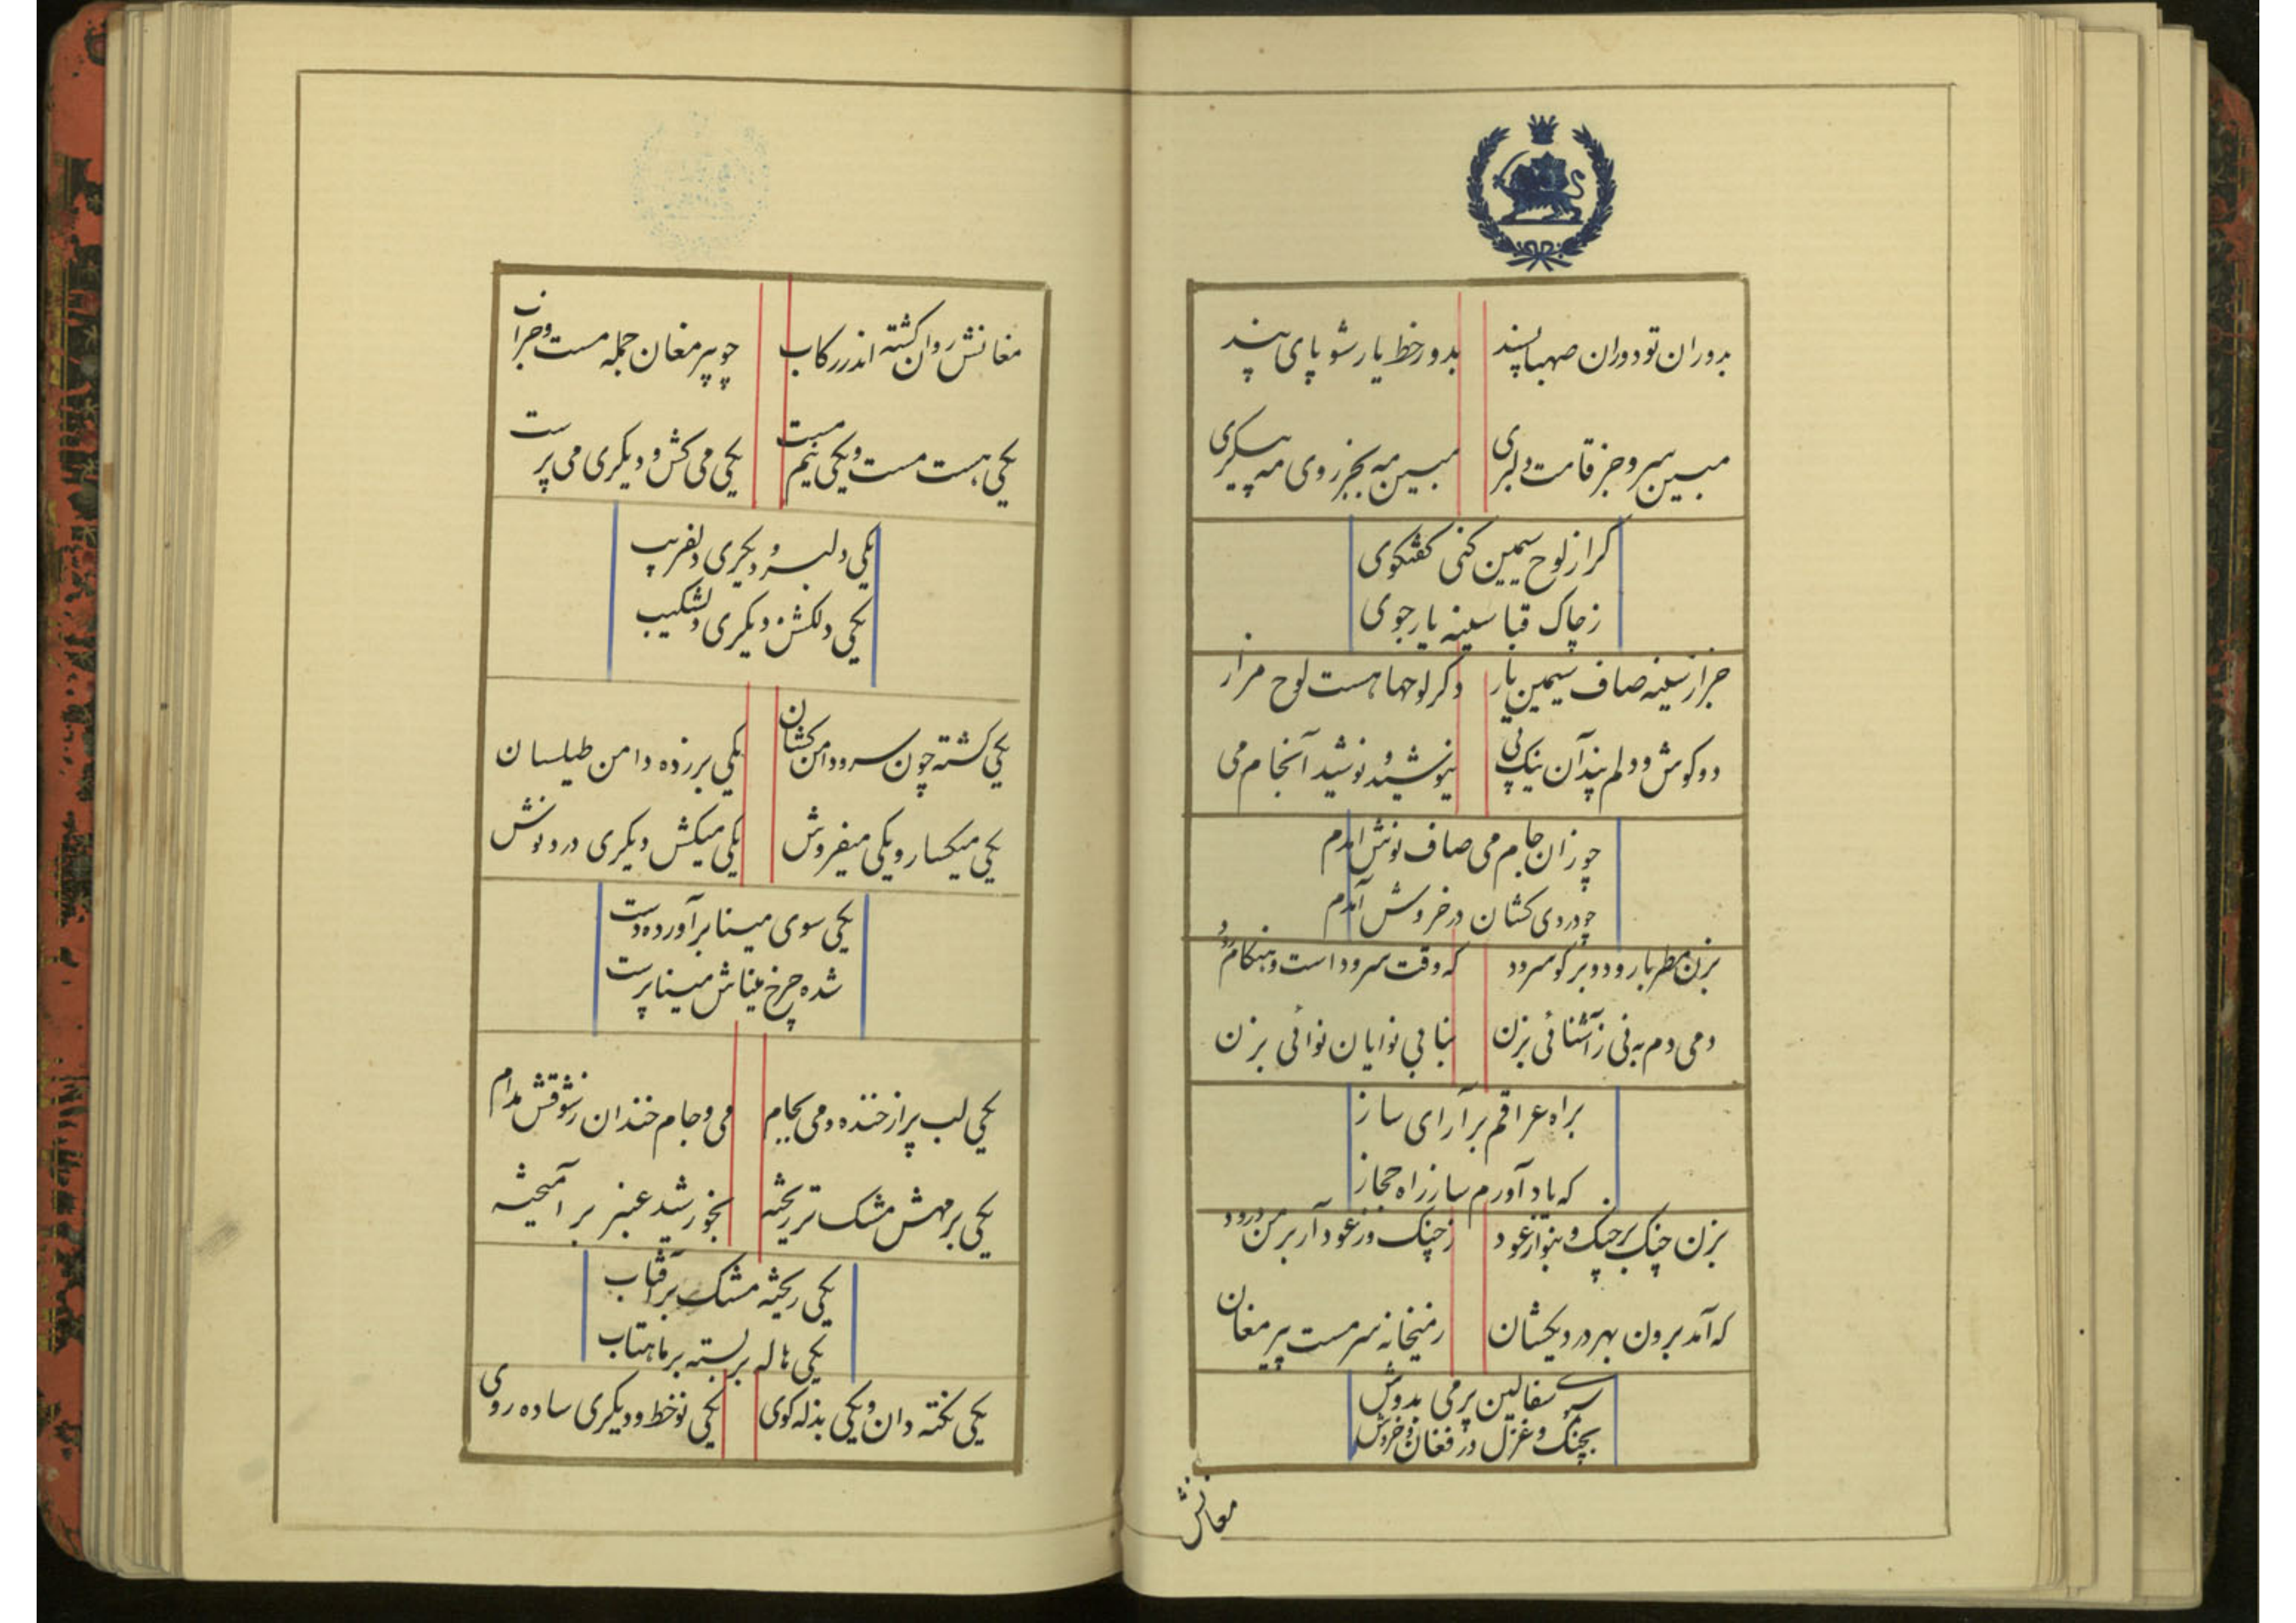 بدوران تو دوران صهبا پسند
بدور خط یار شو پای بند
مبین سرو جز قامت دلبری
مبین مه بجز روی مه پیکری
کر از لوح سیمین کنی کفتکوی
ز چاک قبا سینه یار جوی
جز از سینه صاف سیمین یار
دکر لوحها هست لوح مزار
دو کوش و دلم پند آن نیک پی
نیوشید و نوشید آنجام می
چو زان جام می صاف نوش آمدم
چو دردی کشان در خروش آمدم
بزن مطربا رود و بر کو سرود
که وقت سرود است و هنکام رود
دمی دم به نی ز آشنائی بزن
بنا بی نوایان نوائی بزن
براه عراقم بر آرای ساز
که یاد آورم ساز راه حجاز
بزن چنک بر چنک و بنواز عود
ز چنک وز عود آر بر من درود
که آمد برون بهر دردیکشان
ز میخانه سرمست پیر مغان
سبوی سفالین پر می بدوش
بچنک و غزل در فغان و خروش
مغانش
مغانش روان کشته اندر رکاب
چو پیر مغان جمله مست و خراب
یکی هست مست و یکی نیم مست
یکی می کش و دیکری می پرست
یکی دلبر و دیکری دلفریب
یکی دلکش و دیکری دلشکیب
یکی کشته چون سرو دامن کشان
یکی بر زده دامن طیلسان
یکی میکسار و یکی میفروش
یکی میکش دیکری درد نوش
یکی سوی مینا بر آورده دست
شده چرخ میناش مینا پرست
یکی لب پر از خنده و می بجام
می و جام خندان ز شوقش مدام
یکی بر مهش مشک تر ریخته
بخورشید عنبر بر آمیخته
یکی ریخته مشک بر آفتاب
یکی هاله بر بسته بر ماهتاب
یکی نکته دان و یکی بذله کوی
یکی نو خط و دیکری ساده روی